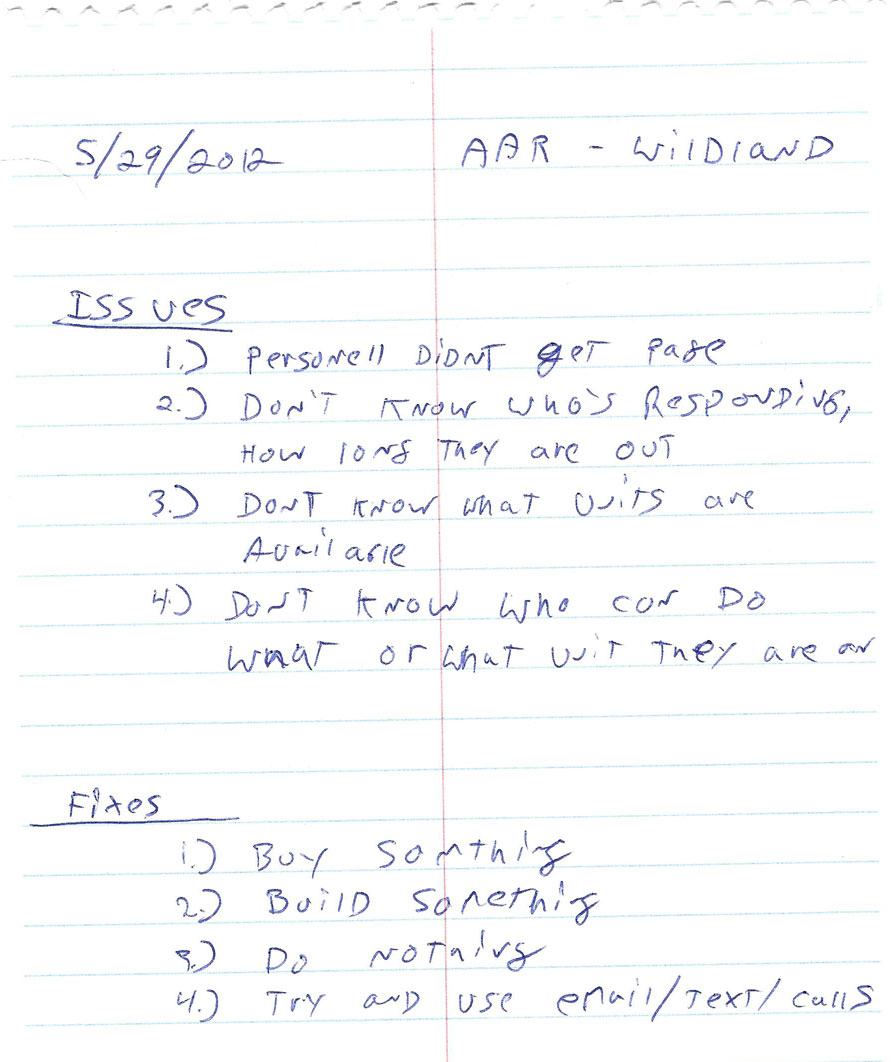 5/29/2012 AAR - WilDlaND
ISSUES
1.) Personell DiDNT get Page
2.) DON'T KNOW who's ResponDiNG,
How long They are out
3.) DONT KNOW what UNiTS are
Available
4.) DONT KNOW who can Do
what or what UNiT They are on
Fixes
1.) Buy Somthing
2.) BuilD Something
3.) Do NOThiNg
4.) Try AND use email/Text/calls